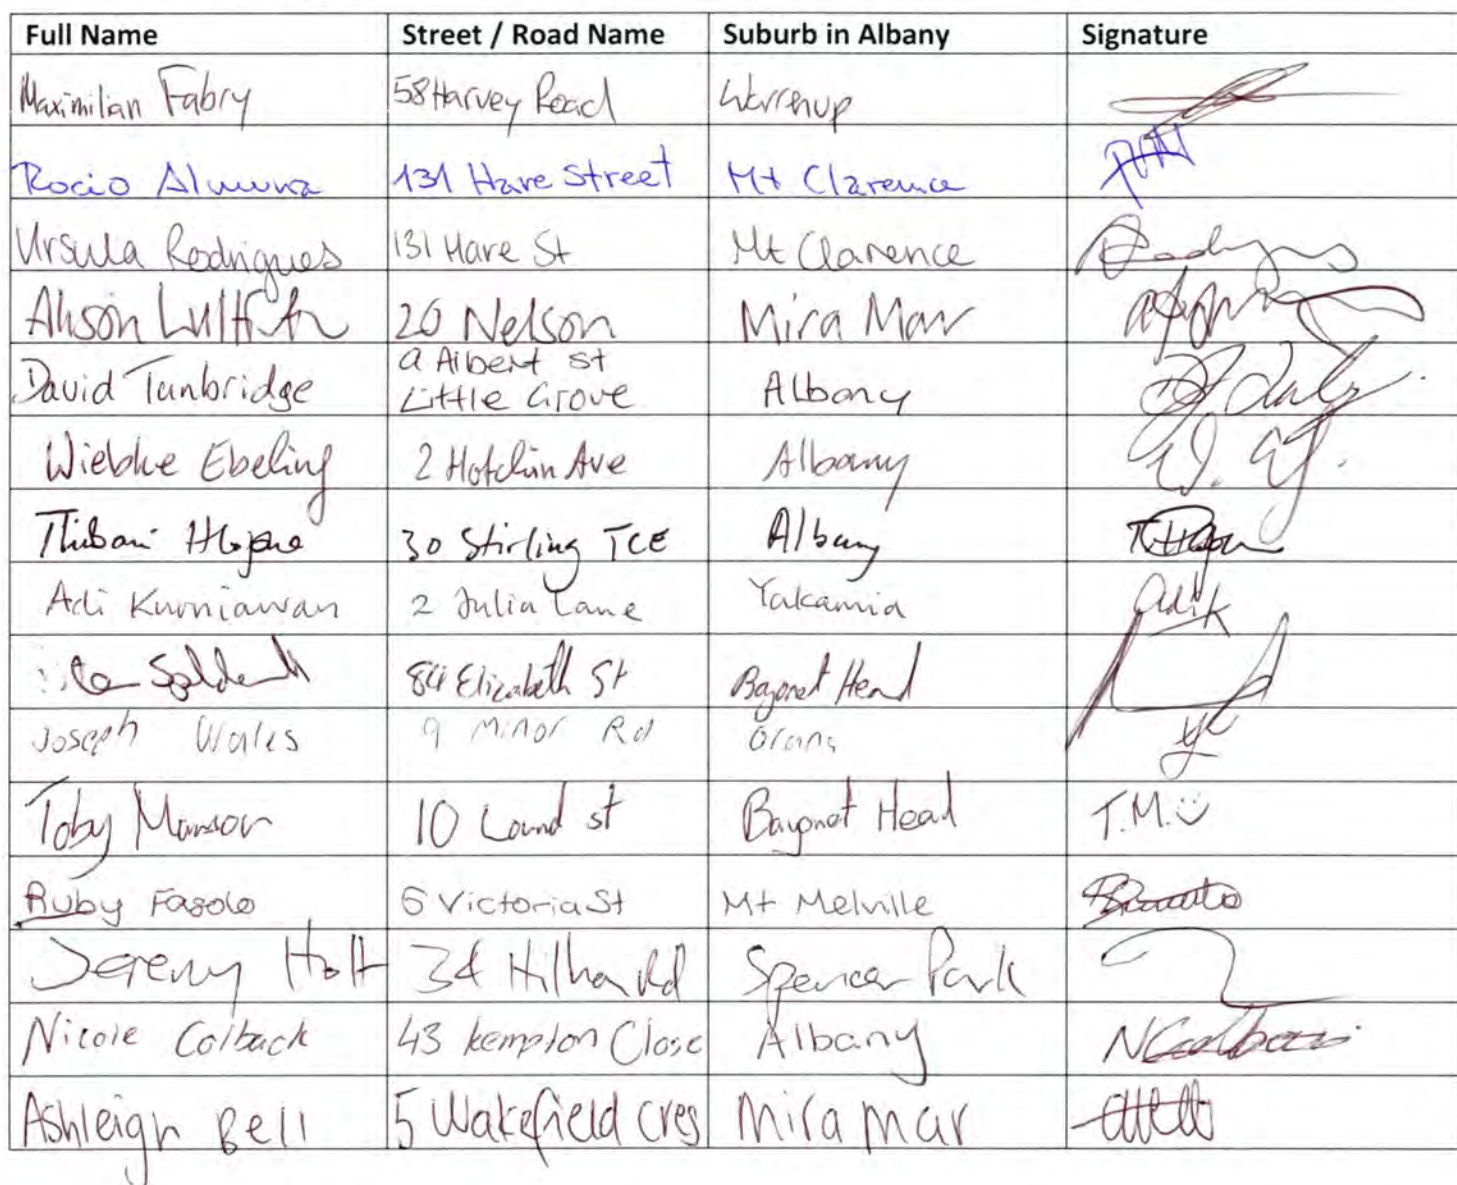 Full Name Street / Road Name Suburb in Albany Signature
Maximilian Fabry 58 Harvey Road Warrenup
Rocio 131 Hare Street Mt Clarence
Ursula Rodrigues 131 Hare St Mt Clarence
Alison 20 Nelson Mira Mar
David Tunbridge 9 Albert St Little Grove Albany
Wiebke Ebeling 2 Hotchin Ave Albany
30 Stirling TCE Albany
Adi Kurniawan 2 Julia Lane Yakamia adik
84 Elizabeth St Bayonet Head
Joseph Wales 9 Minor Rd Orana
Toby Manson 10 st Bayonet Head T.M.
Ruby Fasolo 6 Victoria St Mt Melville
Jeremy Holt 34 Rd Spencer Park
Nicole Colback 43 Kempton Close Albany
Ashleigh Bell 5 Wakefield Cres Mira Mar